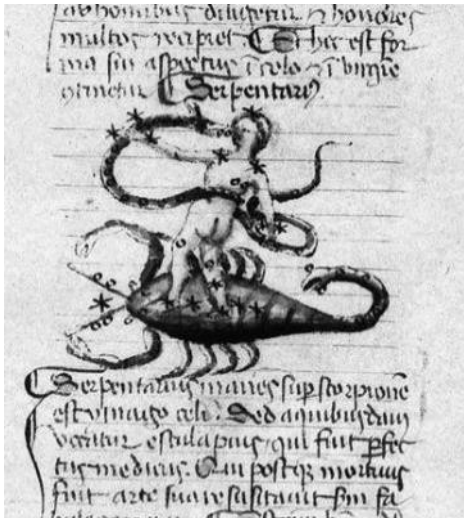 ab hominibus diligetur ⁊ honores
multos recipiet. Et hec est for
ma sui aspectus ī celo ⁊ ī ymagīe
Serpentariꝯ
Serpentarius manēs sup scorpionē
est ymago celi. Sed a quibusdam
vocatur esculapius, qui fuit ꝑfec
tus medicus. Qui postqꝫ mortuus
fuit arte sua resuscitauit